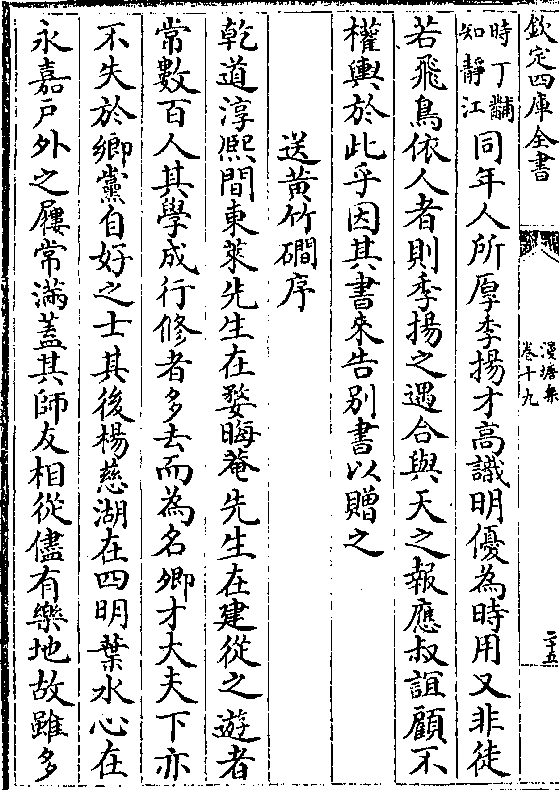 欽定四庫全書
漫塘集
卷十九
二十五
時丁黼
知靜江
同年人所厚季揚才高識明優為時用又非徒
若飛鳥依人者則季揚之遇合與天之報應叔誼顧不
權輿於此乎因其書來告别書以贈之
送黄竹磵序
乾道淳熙間東萊先生在婺晦菴先生在建從之遊者
常數百人其學成行修者多去而為名卿才大夫下亦
不失於鄉黨自好之士其後楊慈湖在四明葉水心在
永嘉戸外之屨常滿蓋其師友相從儘有樂地故雖多